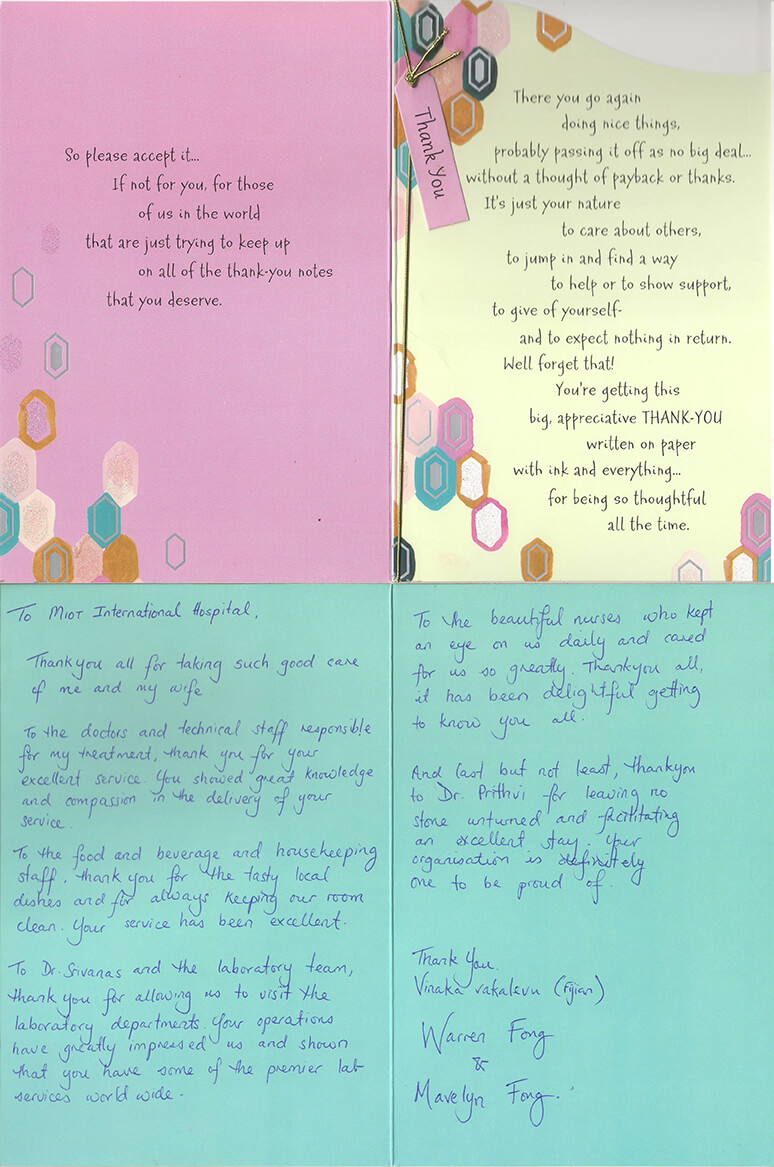 So please accept it...
If not for you, for those
of us in the world
that are just trying to keep up
on all of the thank-you notes
that you deserve.
Thank You
There you go again
doing nice things,
probably passing it off as no big deal...
without a thought of payback or thanks.
It's just your nature
to care about others,
to jump in and find a way
to help or to show support,
to give of yourself-
and to expect nothing in return.
Well forget that!
You're getting this
big, appreciative THANK-YOU
written on paper
with ink and everything...
for being so thoughtful
all the time.
To MIOT International Hospital,
Thankyou all for taking such good care
of me and my wife
To the doctors and technical staff responsible
for my treatment, thank you for your
excellent service. You showed great knowledge
and compassion in the delivery of your
service.
To the food and beverage and housekeeping
staff, thank you for the tasty local
dishes and for always keeping our room
clean. Your service has been excellent.
To Dr. Sivanas and the laboratory team,
thank you for allowing us to visit the
laboratory departments. Your operations
have greatly impressed us and shown
that you have some of the premier lab
services world wide.
To the beautiful nurses who kept
an eye on us daily and cared
for us so greatly. Thankyou all,
it has been delightful getting
to know you all.
And last but not least, thankyou
to Dr. Prithvi for leaving no
stone unturned and facilitating
an excellent stay. Your
organisation is definitely
one to be proud of.
Thank You.
Vinaka vakalevu (Fijian)
Warren Fong
&
Mavelyn Fong.